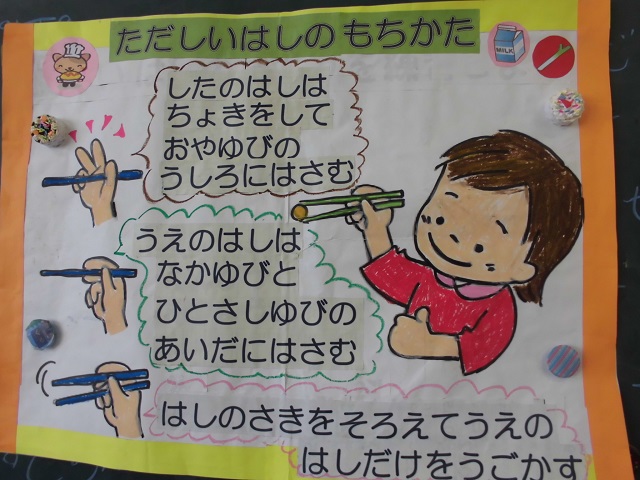 ただしいはしの もちかた
MILK
したのはしは
ちょきをして
おやゆびの
うしろにはさむ
うえのはしは
なかゆびと
ひとさしゆびの
あいだにはさむ
はしのさきをそろえてうえの
はしだけをうごかす